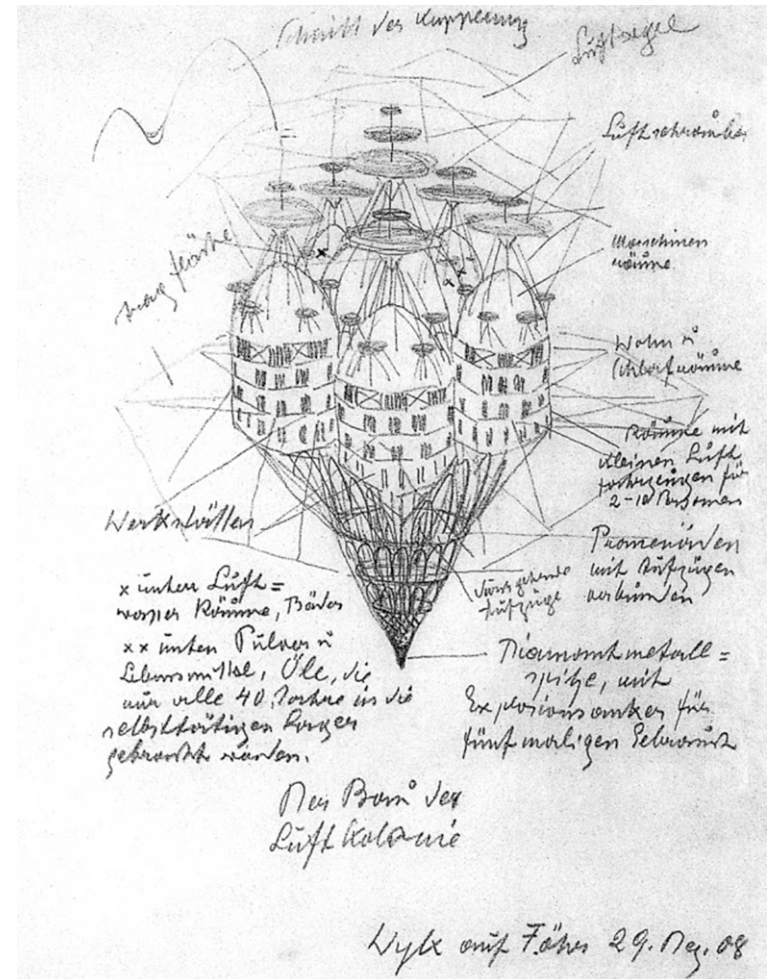 Schnitt der
Luftsegel
Luftschrauben
Maschinen
räume
Trag fläche
Wohn u
Schlafräume
Räume mit
kleinen Luft
fahrzeugen für
2-10 Personen
Werkstätten
Promenaden
mit Aufzügen
verbunden
Aufzüge
x unten Luft=
wasser Räume, Bäder
xx unten Pulver u
Lebensmittel, Öle, die
nur alle 40 Jahre in die
selbsttätigen Lager
gebracht werden.
Diamantmetall=
spitze, mit
Explosionsanker für
fünfmaligen Gebrauch
Der Bau der
Luftkolonie
Wyk auf Föhr 29. Dez. 08